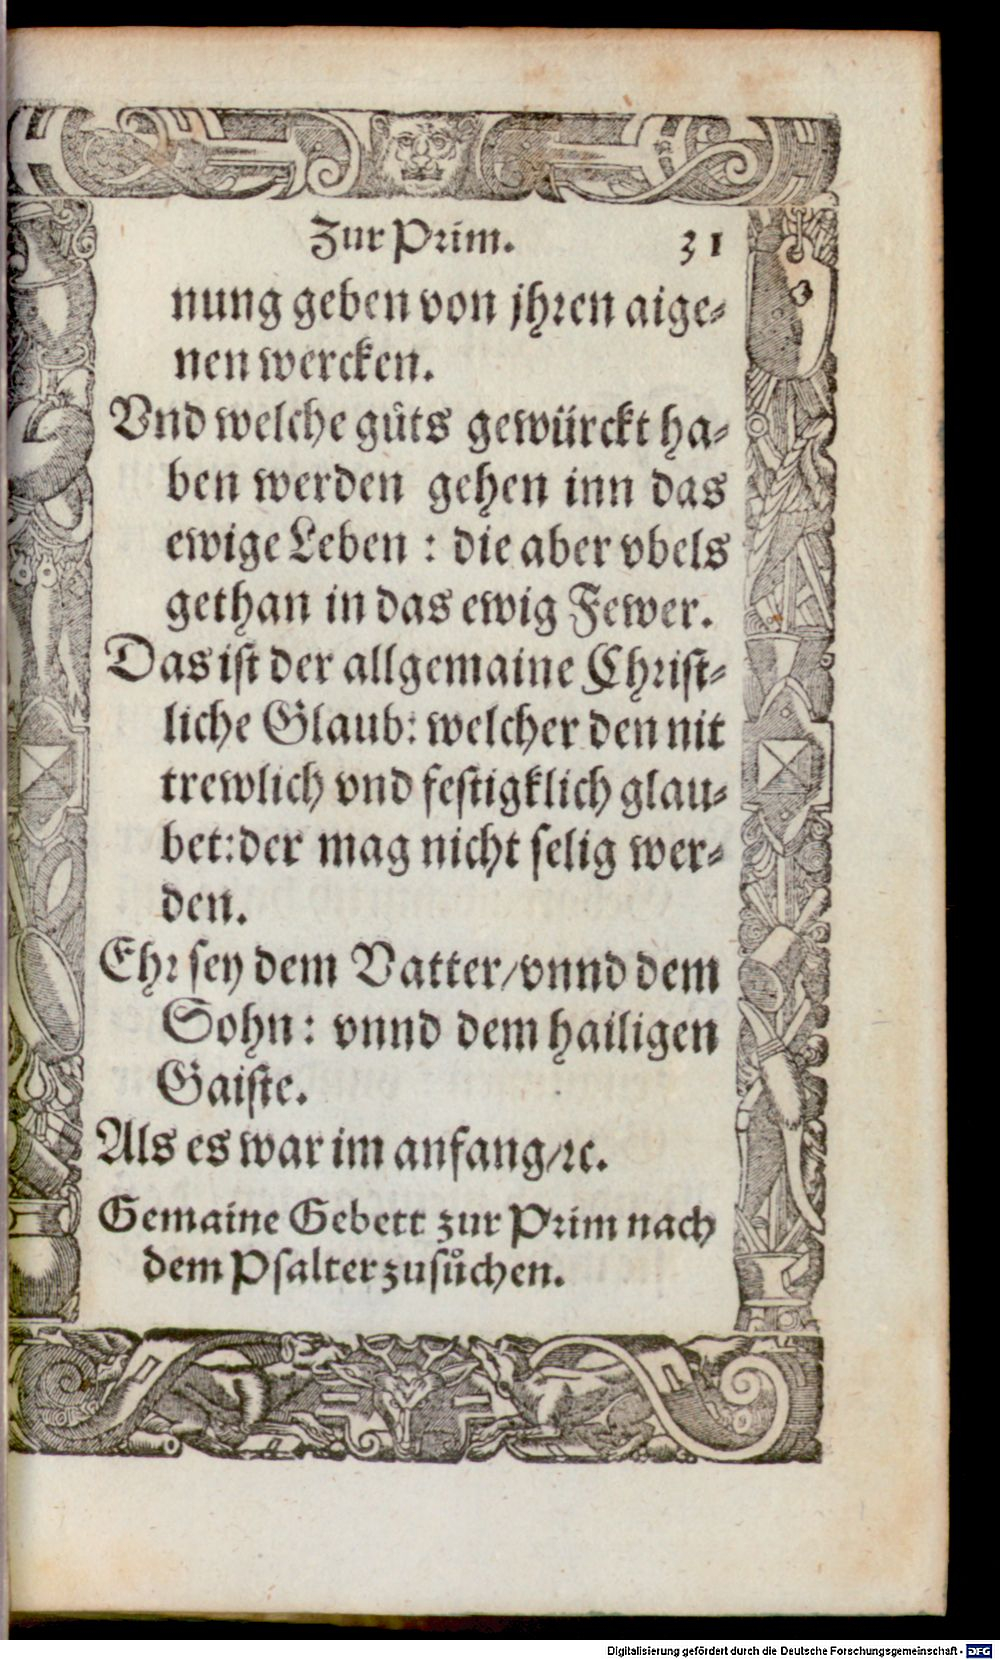 Zur Prim. 31
nung geben von jhren aige⸗
nen wercken.
Vnd welche gůts gewürckt ha⸗
ben werden gehen inn das
ewige Leben : die aber vbels
gethan in das ewig Fewer.
Das ist der allgemaine Christ⸗
liche Glaub: welcher den nit
trewlich vnd festigklich glau⸗
bet: der mag nicht selig wer⸗
den.
Ehr sey dem Vatter/vnnd dem
Sohn : vnnd dem hailigen
Gaiste.
Als es war im anfang/ꝛc.
Gemaine Gebett zur Prim nach
dem Psalter zusůchen.
Digitalisierung gefördert durch die Deutsche Forschungsgemeinschaft - DFG